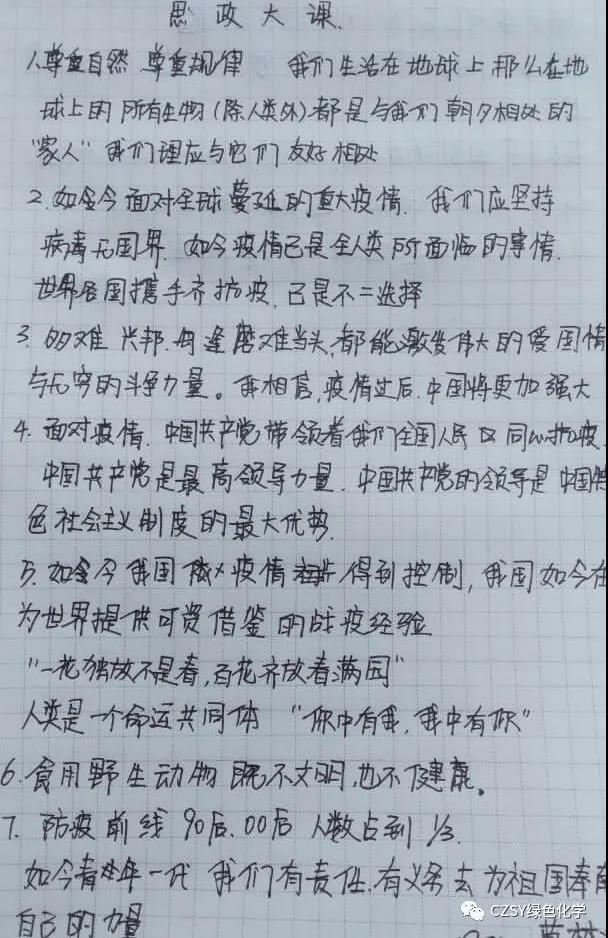 思政大课.
1.尊重自然 尊重规律 我们生活在地球上 那么在地
球上的所有生物(除人类外)都是与我们朝夕相处的
“家人” 我们理应与它们友好相处
2.如今 面对全球蔓延的重大疫情. 我们应坚持
病毒无国界. 如今疫情已是全人类所面临的事情.
世界各国携手齐抗疫. 已是不二选择
3. 多难兴邦.每逢磨难当头,都能激发伟大的爱国情
与无穷的斗争力量。我相信,疫情过后.中国将更加强大
4. 面对疫情. 中国共产党带领着我们全国人民 同心抗疫.
中国共产党是最高领导力量. 中国共产党的领导是中国特
色社会主义制度的最大优势.
5. 如今我国 疫情 得到控制, 我国如今在
为世界提供可资借鉴的战疫经验
“一花独放不是春,百花齐放春满园”
人类是一个命运共同体 “你中有我,我中有你”
6.食用野生动物既不文明,也不健康。
7. 防疫前线 90后.00后 人数占到 1/3.
如今青年一代 我们有责任.有义务去为祖国奉献
自己的力量
CZSY绿色化学